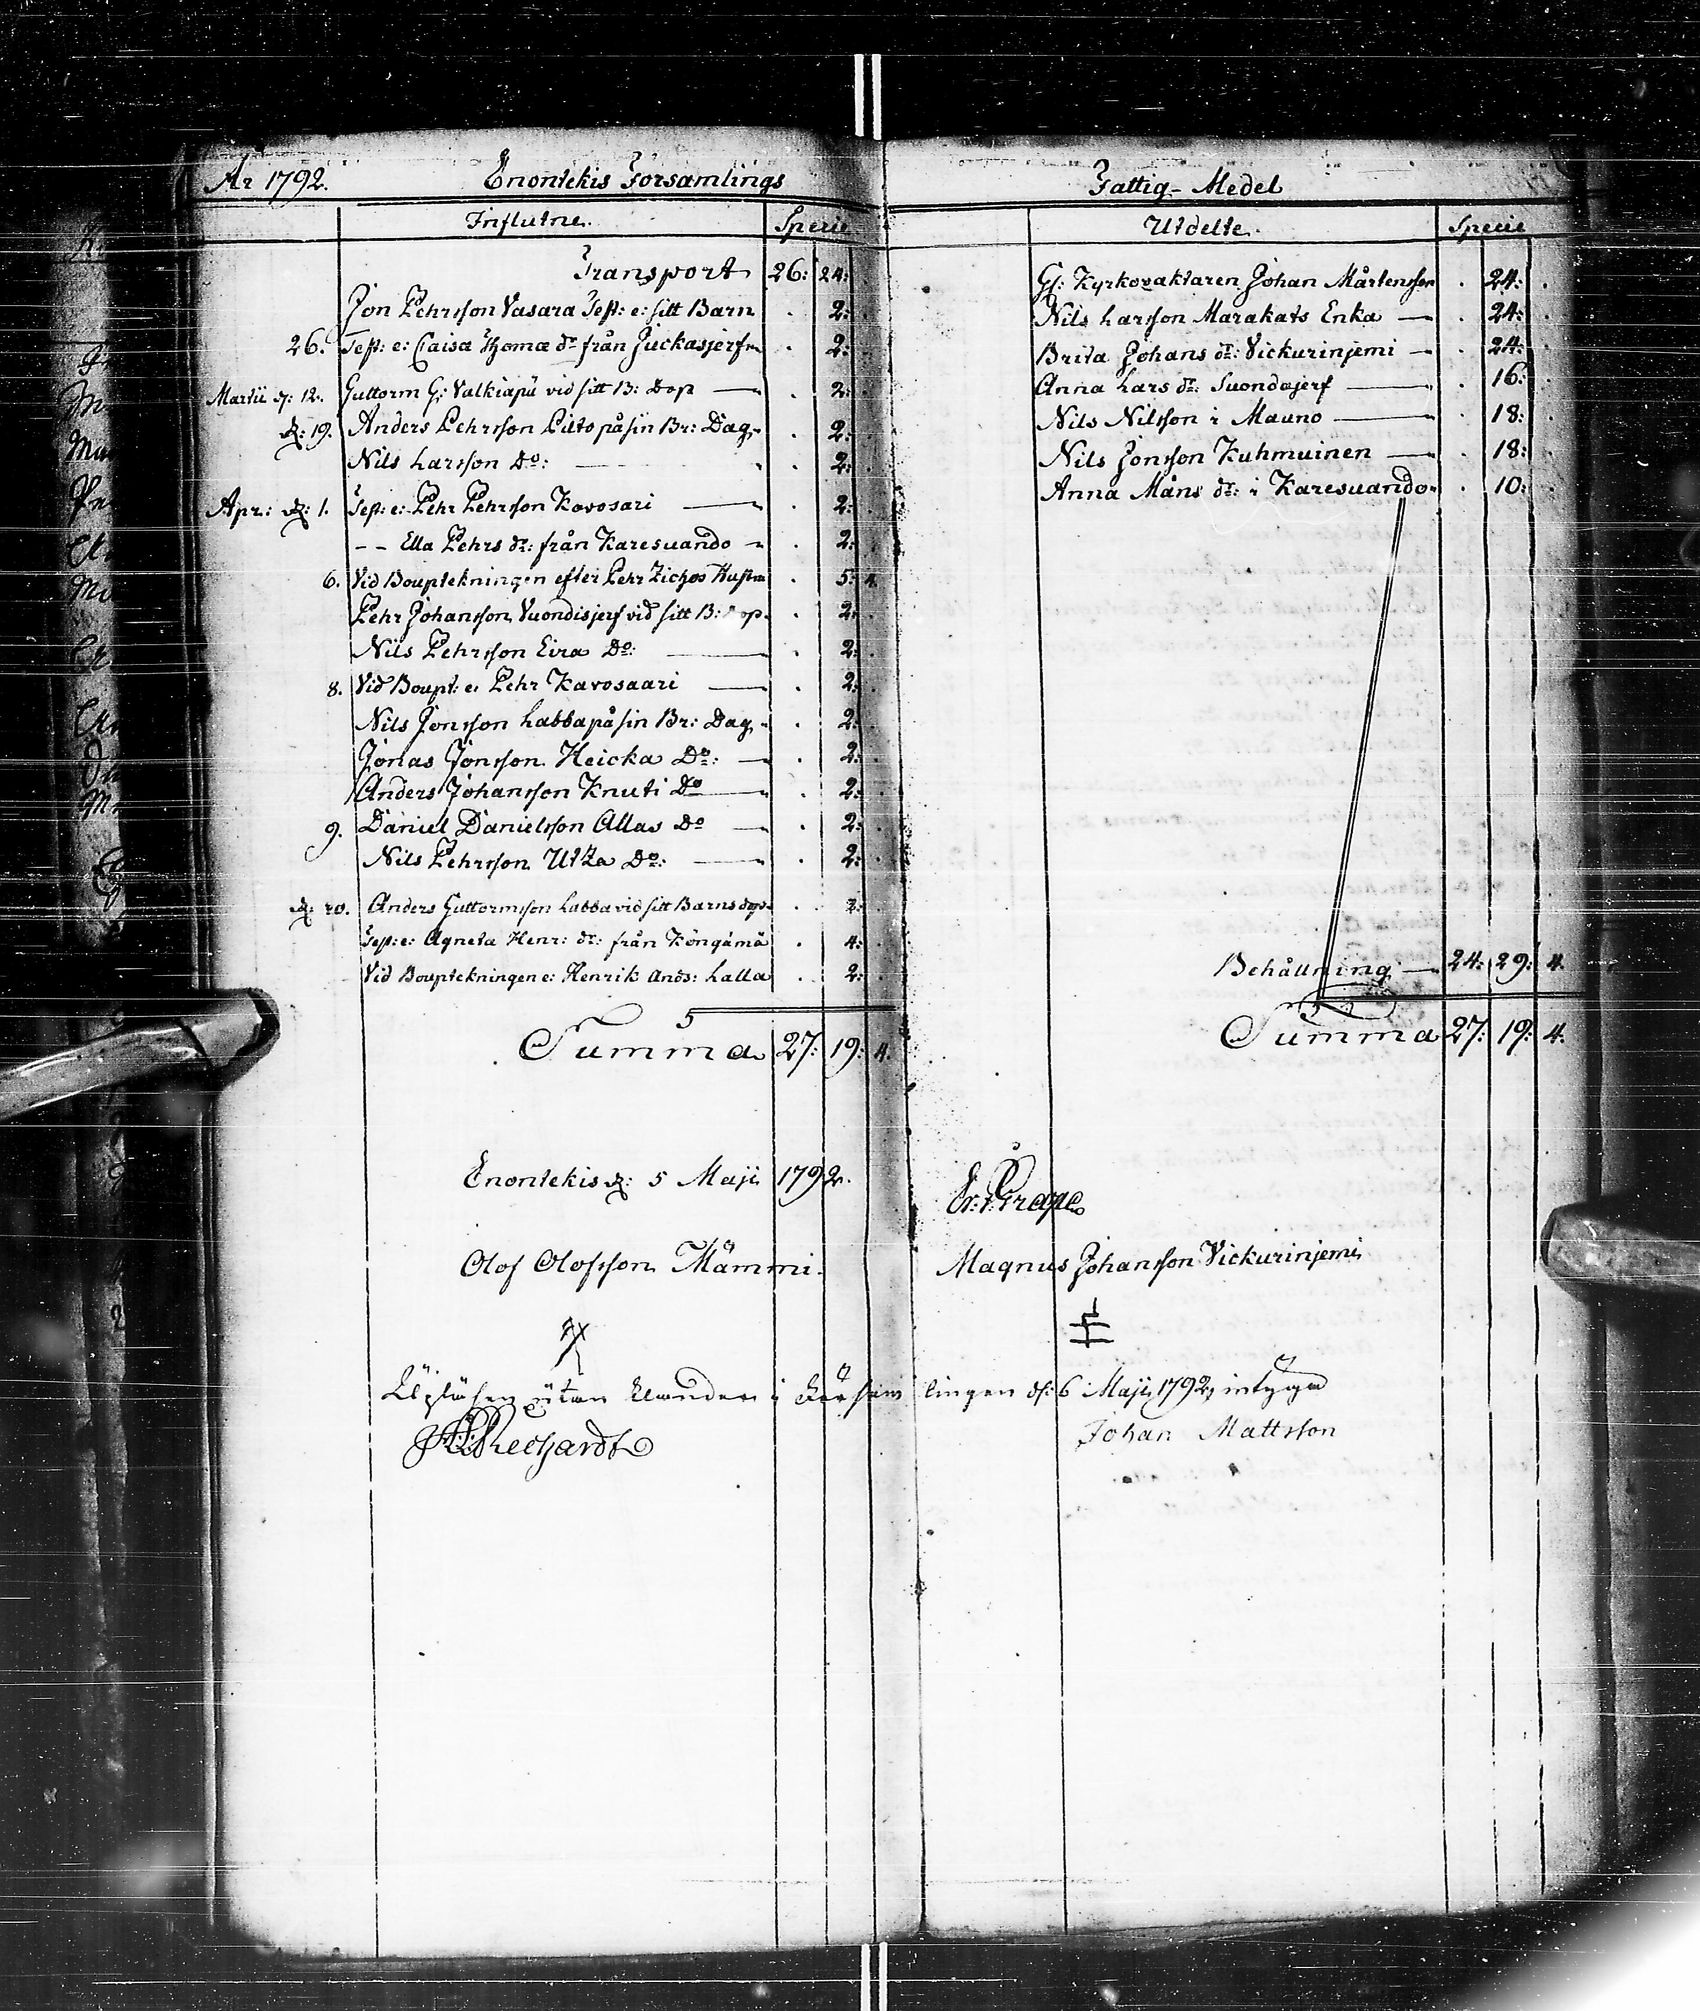 År 1792. Enontekis Församlings
Influtne. Specie
Transport 26: 24:
Jon Pehrsson Vasara Test: e: sitt Barn . 2:
26. Test: e: Caisa Thomæ dr från Juckasjerf . 2:
Martii d: 12. Guttorm G: Valkiapä vid sitt B: Dop — . 2:
d: 19. Anders Pehrsson Pilto på sin Br: Dag . 2:
Nils Larsson Do: — . 2:
Apr: d: 1. Test: e: Pehr Pehrsson Kavosari — . 2:
- - Ella Pehrs dr: från Karesuando . 2:
6. Vid Bouptekningen efter Pehr Zichos Hustru . 5: 4.
Pehr Johansson Vuondisjerf vid sitt B: Dop . 2:
Nils Pehrsson Eira Do: — . 2:
8. Vid Boupt: e: Pehr Kavosaari — . 2:
Nils Jonsson Labba på sin Br: Dag . 2:
Jonas Jonsson Heicka Do: — . 2:
Anders Johansson Knuti Do — . 2:
9. Daniel Danielsson Allas Do — . 2:
Nils Pehrsson Utza Do: — . 2:
d: 20. Anders Guttormsson Labba vid sitt Barns dop . 2:
Test: e: Agneta Henr: dr: från Köngämä . 4:
Vid Bouptekningen e: Henrik Ands: Lalla . 2:
Summa 27: 19: 4.
Enontekis d: 5 Maji 1792.
Olof Olofsson Mämmi.
Fattig-Medel
Utdelte. Specie
Gf: Kyrkovaktaren Johan Mårtensson . 24:
Nils Larsson Marakats Enka — . 24:
Brita Johans dr: Vickurinjemi — . 24:
Anna Lars dr: Suondajerf — . 16:
Nils Nilsson i Mauno — . 18:
Nils Jonsson Kuhmuinen — . 18:
Anna Måns dr: i Karesuando . 10:
Behållning — 24: 29: 4.
Summa 27: 19: 4.
Er: J: Grape
Magnus Johansson Vickurinjemi
Upläsen utan klander i Församlingen d: 6 Maji 1792, intyga
Rechardt
Johan Mattsson